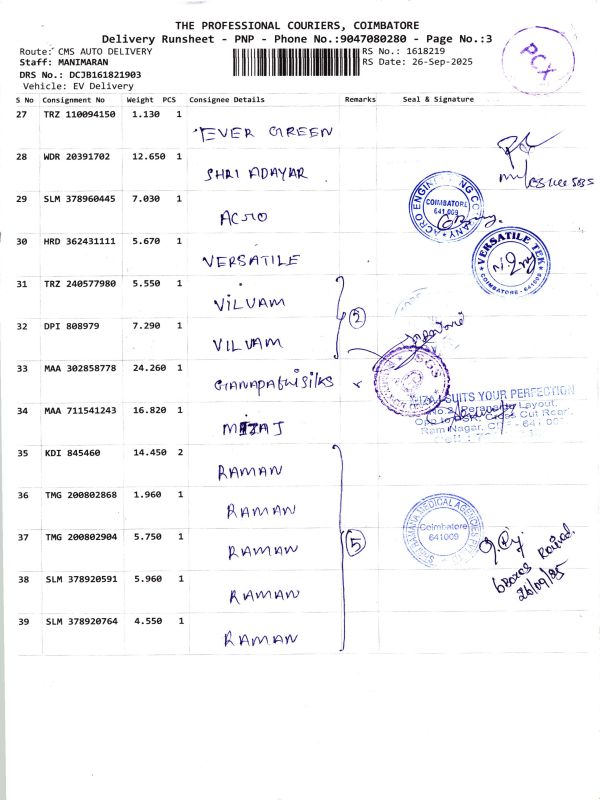 THE PROFESSIONAL COURIERS, COIMBATORE
Delivery Runsheet - PNP - Phone No.:9047080280 - Page No.:3
PCX
Route: CMS AUTO DELIVERY RS No.: 1618219
Staff: MANIMARAN RS Date: 26-Sep-2025
DRS No.: DCJB161821903
Vehicle: EV Delivery
S No Consignment No Weight PCS Consignee Details Remarks Seal & Signature
27 TRZ 110094150 1.130 1 EVER GREEN
28 WDR 20391702 12.650 1 SHRI ADAYAR
29 SLM 378960445 7.030 1 ACRO
ACRO ENGINEERING COMPANY COIMBATORE 641 009
30 HRD 362431111 5.670 1 VERSATILE
VERSATILE TEK COIMBATORE - 641009
31 TRZ 240577980 5.550 1 VILVAM
2
32 DPI 808979 7.290 1 VILVAM
33 MAA 302858778 24.260 1 GANAPATHI SILKS
34 MAA 711541243 16.820 1 MIZAJ
SUITS YOUR PERFECTION
Layout,
Cross Cut Road,
Ram Nagar,
35 KDI 845460 14.450 2 RAMAN
36 TMG 200802868 1.960 1 RAMAN
37 TMG 200802904 5.750 1 RAMAN
5
MEDICAL AGENCIES Coimbatore 641009
6 Boxes
26/09/25
38 SLM 378920591 5.960 1 RAMAN
39 SLM 378920764 4.550 1 RAMAN